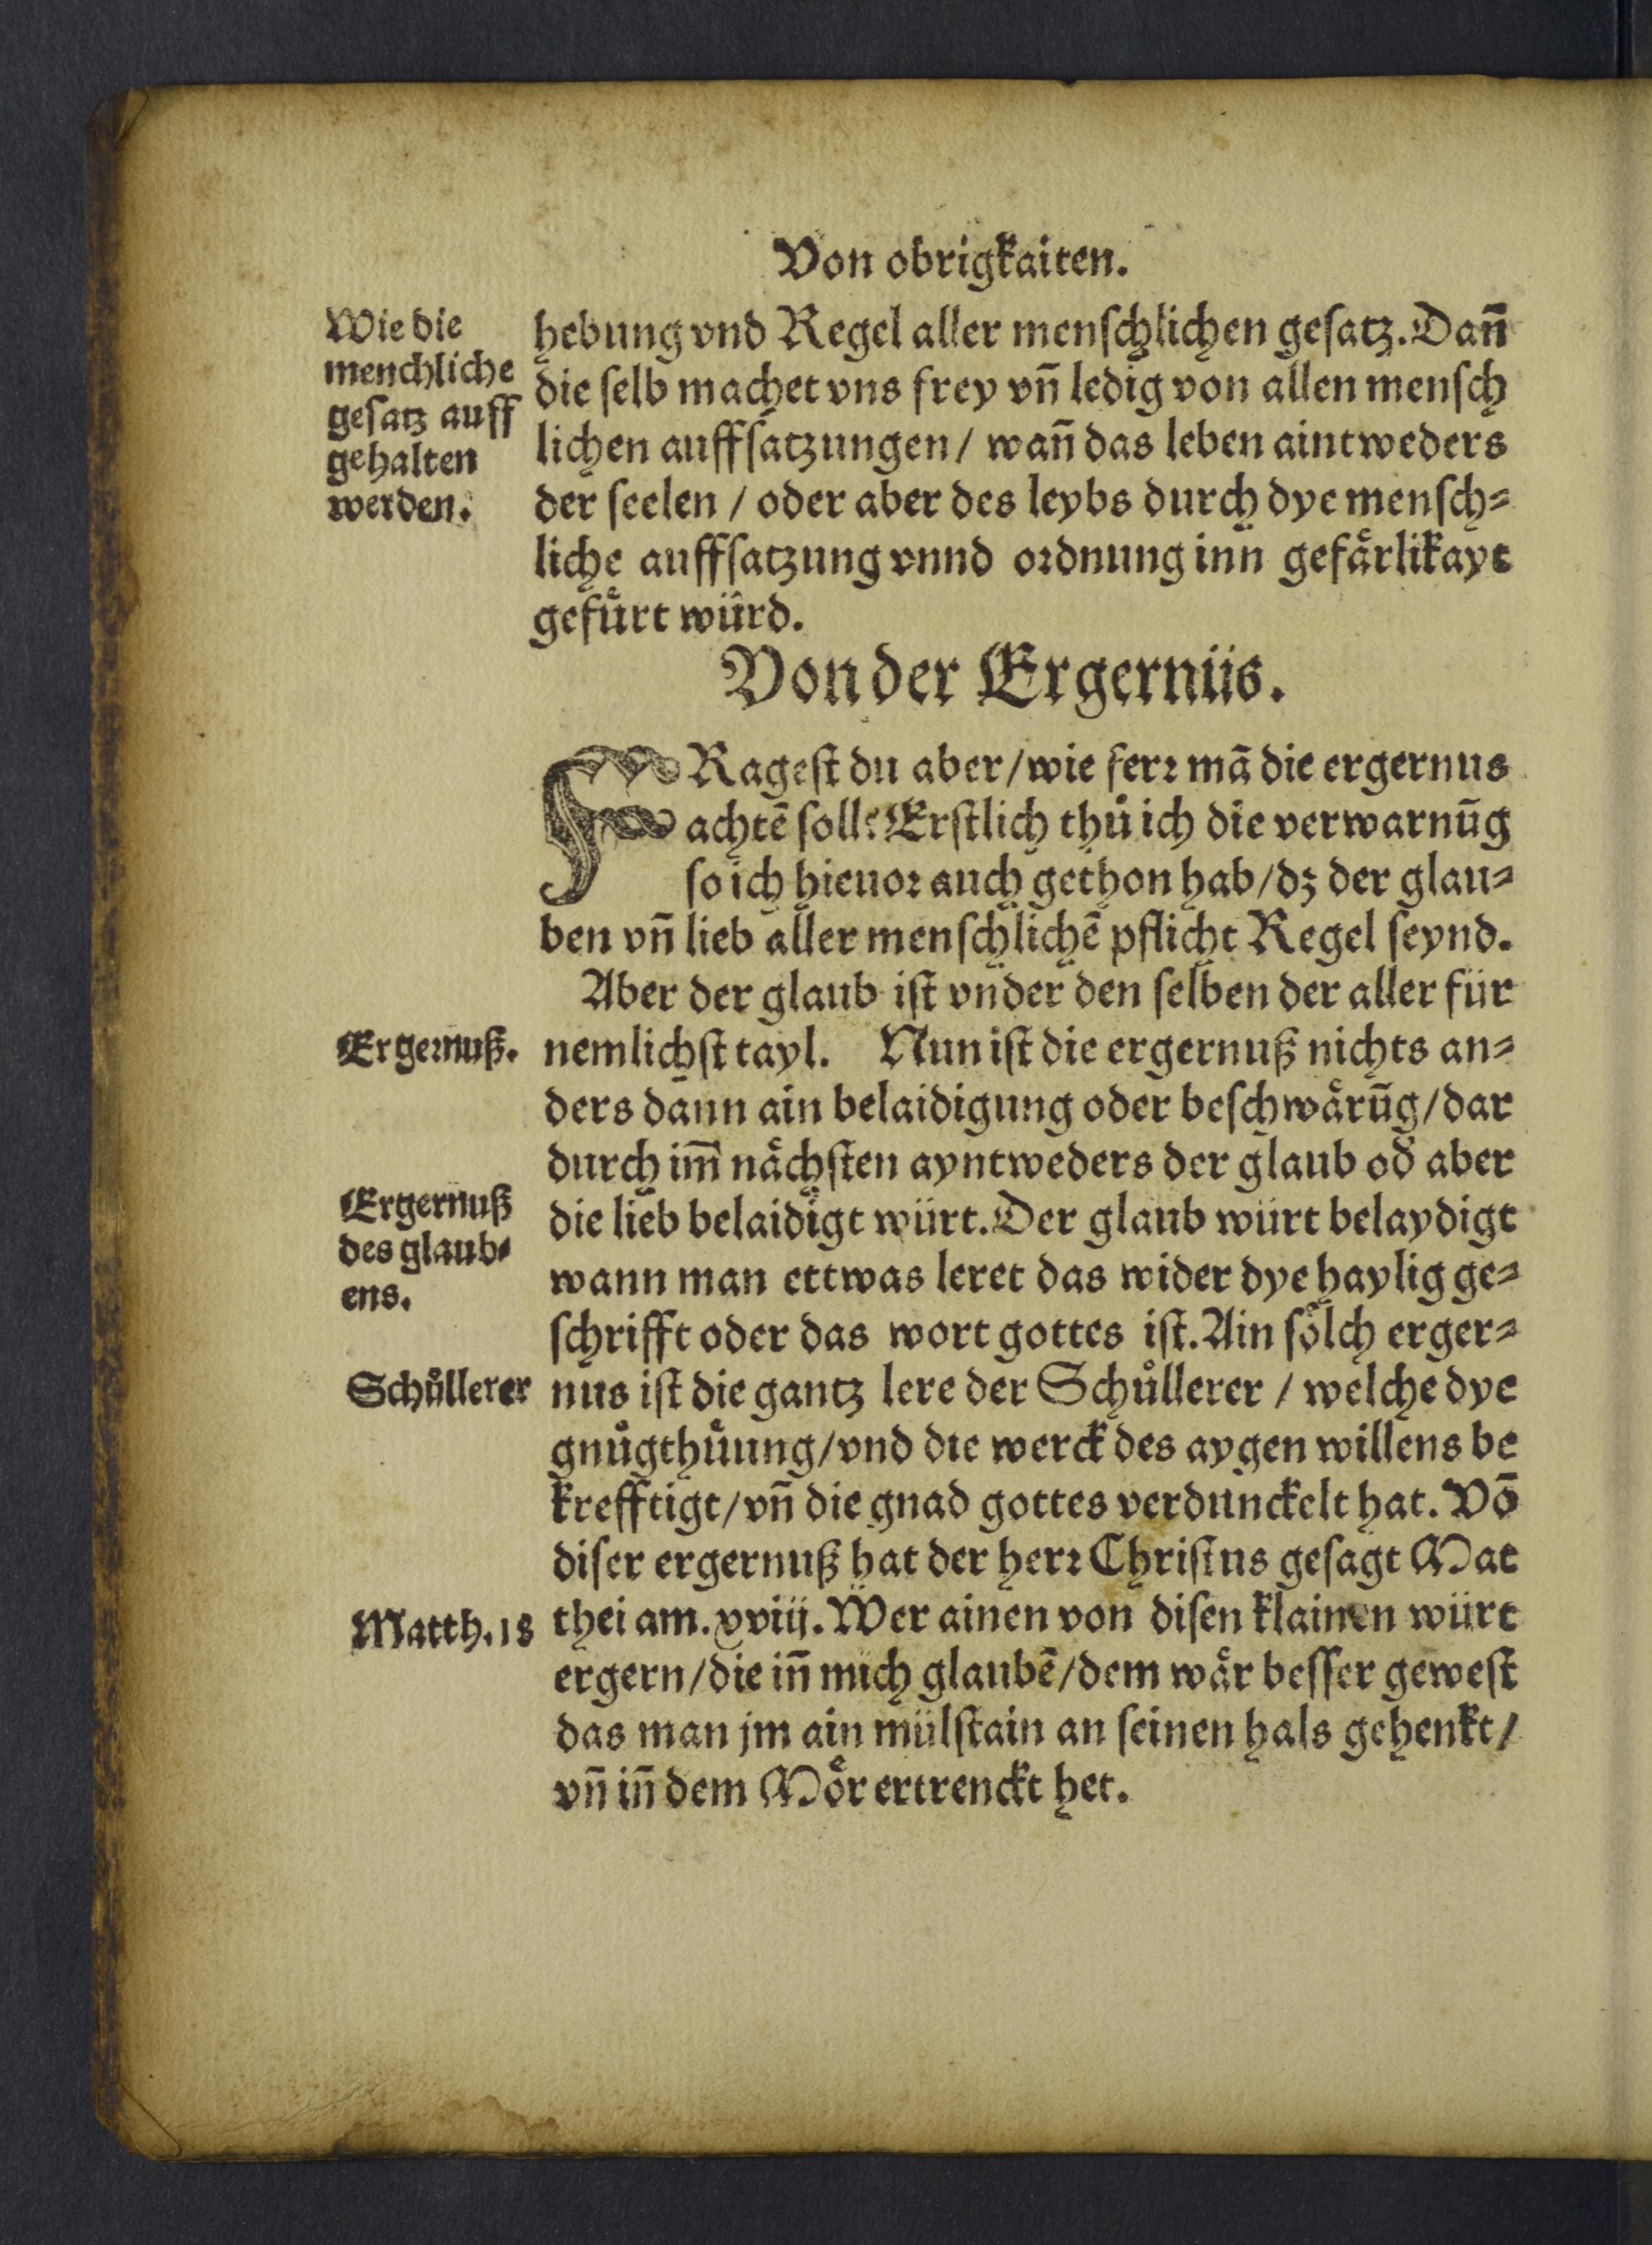 Von obrigkaiten.
Wie die
menchliche
gesatz auff
gehalten
werden.
hebung vnd Regel aller menschlichen gesatz. Dañ
die selb machet vns frey vñ ledig von allen mensch
lichen auffsatzungen / wañ das leben aintweders
der seelen / oder aber des leybs durch dye mensch⸗
liche auffsatzung vnnd ordnung inn gefaͤrlikayt
gefuͤrt wuͤrd.
Von der Ergernüs.
FRagest du aber / wie ferr mā die ergernus
achtē soll? Erstlich thuͦ ich die verwarnūg
so ich hieuor auch gethon hab / dz der glau⸗
ben vñ lieb aller menschlichē pflicht Regel seynd.
Aber der glaub ist vnder den selben der aller für
Ergernuß.
nemlichst tayl. Nun ist die ergernuß nichts an⸗
ders dann ain belaidigung oder beschwaͤrūg / dar
durch im̄ naͤchsten ayntweders der glaub od̄ aber
Ergernuß
des glaub⸗
ens.
die lieb belaidigt würt. Der glaub würt belaydigt
wann man ettwas leret das wider dye haylig ge⸗
schrifft oder das wort gottes ist. Ain soͤlch erger⸗
Schuͦllerer
nus ist die gantz lere der Schuͦllerer / welche dye
gnuͦgthuͤung / vnd die werck des aygen willens be
krefftigt / vñ die gnad gottes verdunckelt hat. Vō
diser ergernuß hat der herr Christus gesagt Mat
Matth. 18
thei am. xviij. Wer ainen von disen klainen würt
ergern / die iñ mich glaubē / dem waͤr besser gewest
das man jm ain mülstain an seinen hals gehenkt /
vñ iñ dem Moͤr ertrenckt het.